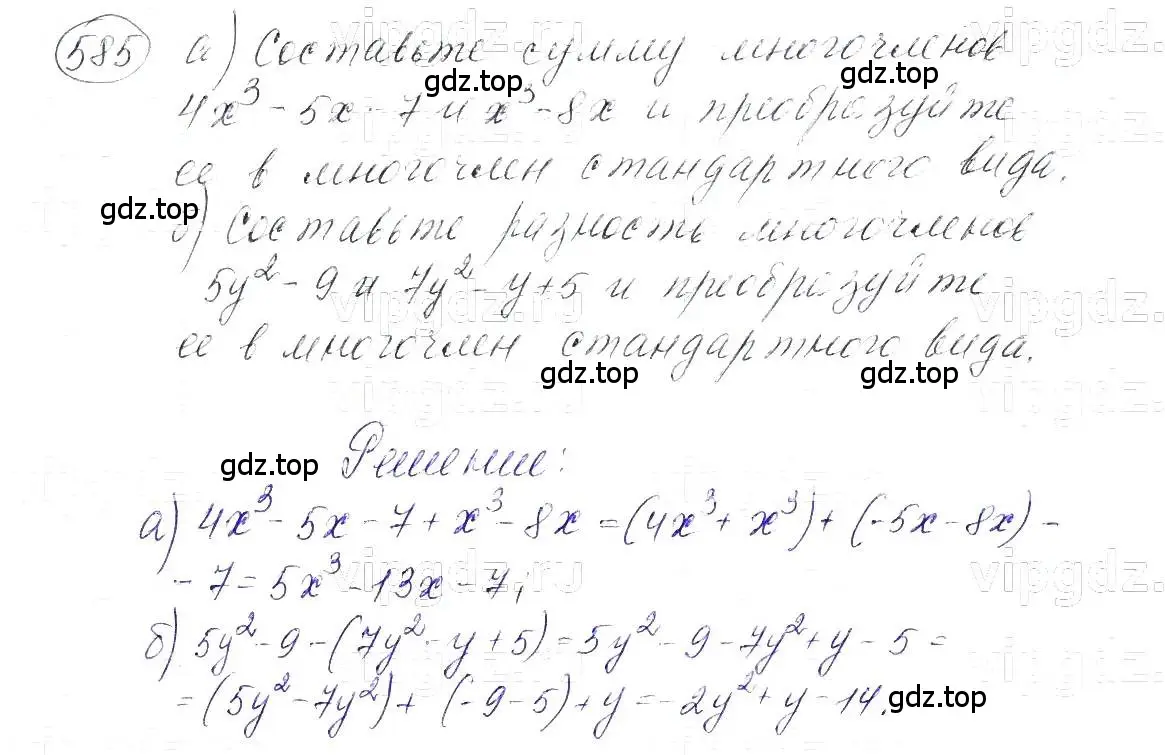 585 а) Составьте сумму многочленов
gdz.top
gdz.top
4x³ - 5x - 7 и x³ - 8x и преобразуйте
ее в многочлен стандартного вида.
gdz.top
б) Составьте разность многочленов
5y² - 9 и 7y² - y + 5 и преобразуйте
ее в многочлен стандартного вида.
gdz.top
gdz.top
Решение:
gdz.top
а) 4x³ - 5x - 7 + x³ - 8x = (4x³ + x³) + (-5x - 8x) -
- 7 = 5x³ - 13x - 7;
б) 5y² - 9 - (7y² - y + 5) = 5y² - 9 - 7y² + y - 5 =
= (5y² - 7y²) + (-9 - 5) + y = -2y² + y - 14.
gdz.top
vipgdz.ru